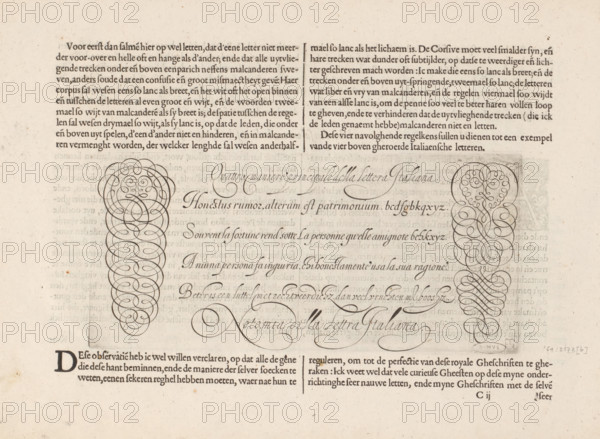 Voor eerst dan salmē hier op wel letten, dat d'eene letter niet meer-
der voor-over en helle oft en hange als d'ander, ende dat alle uytvlie-
gende trecken onder en boven een parich neffens malcanderen swe-
ven, anders soude dat een confusie en groot mismaeckt heyt gevē: Haer
corpus sal wesen eens so lanc als breet, en het wit oft het open binnen
en tusschen de letteren al even groot en wijt, en de woorden twee-
mael so wijt van malcanderē als sy breet is, de spatie tusschen de rege-
len sal wesen drymael so wijt, als sy lanc is, op dat de leden, die onder
eñ boven uyt spelen, d'een d'ander niet en hinderen, eñ in malcande-
ren vermenght worden, der welcker lenghde sal wesen anderhalf-
mael so lanc als het lichaem is. De Corsive moet veel smalder syn, eñ
hare trecken wat dunder oft subtijlder, op datse te weerdiger en lich-
ter geschreven mach worden: Ic make die eens so lanc als breet, eñ de
trecken onder en boven uyt-springende, tweemael so lanc, de letteren
wat liber en vry van malcanderen, eñ de regelen viermael soo wijdt
van een alsse lanc is, om de penne soo veel te beter haren vollen loop
te gheven, ende te verhinderen dat de uytvlieghende trecken (die ick
de leden genaemt hebbe) malcanderen niet en letten.
Dese vier navolghende regelkens sullen u dienen tot een exempel
van de vier boven gheroerde Italiaensche letteren.
della lettera Italiana
Honestus rumor, alterum est patrimonium. bcdfgbkqxyz
Souvent la fortune rend sotte La personne qu'elle amignote behkxyz
A niuna persona fa ingiuria, chi honestamente usa la sua ragione.
della lettra Italiana
DEse observatiē heb ic wel willen verclaren, op dat alle de gēne
die dese hant beminnen, ende de maniere der selver soecken te
weten, eenen sekeren reghel hebben moeten, waer nae hun te
reguleren, om tot de perfectie van dese royale Gheschriften te ghe-
raken: Ick weet wel dat vele curieuse Gheesten op dese myne onder-
richtinghe seer nauwe letten, ende myne Gheschriften met de selvē
C ij
seer
PHOTO 12